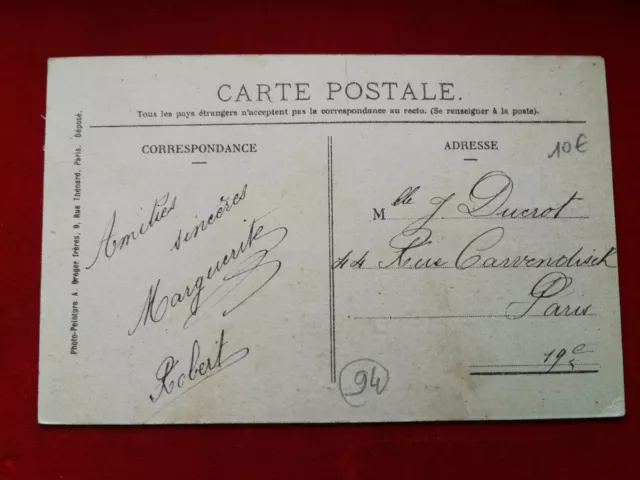 CARTE POSTALE.
Tous les pays étrangers n'acceptent pas la correspondance au recto. (Se renseigner à la poste).
CORRESPONDANCE
ADRESSE
10€
Amitiés
sincères
Marguerite
Robert
Mlle J. Ducrot
44 Rue Carvendisck
Paris
19e
94
Photo-Peinture A. Breger frères, 9, Rue Thénard, Paris. Déposé.